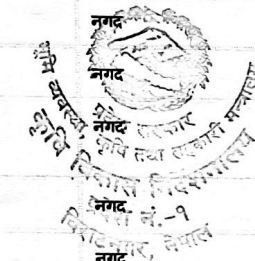 नगद
नगद
नगद
नगद
नगद
प्रदेश सरकार
भूमि व्यवस्था कृषि तथा सहकारी मन्त्रालय
कृषि विकास निर्देशनालय
प्रदेश नं.-१
विराटनगर, नेपाल